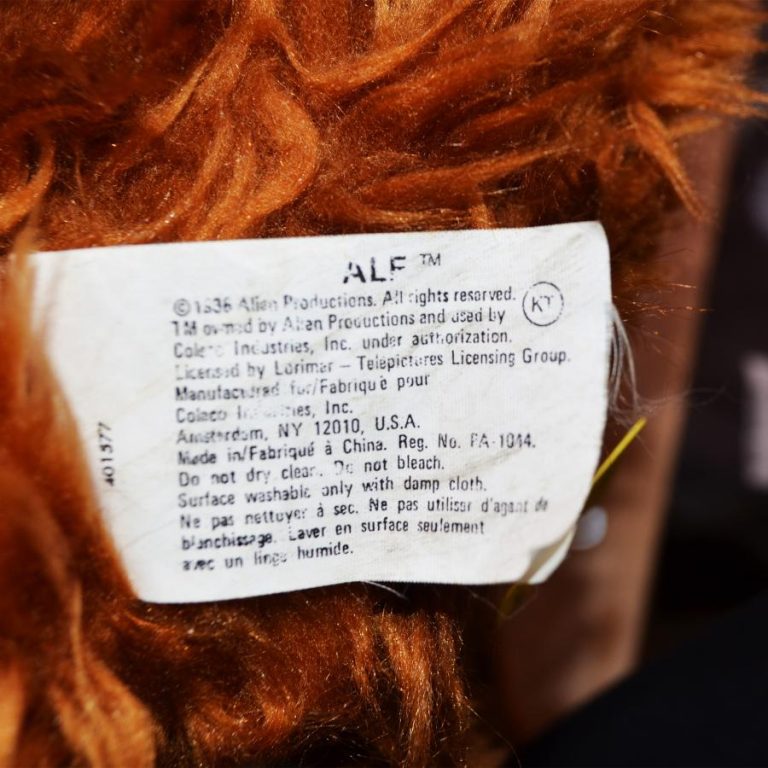 ALF ™
© 1986 Alien Productions. All rights reserved.
KT
TM owned by Alien Productions and used by
Coleco Industries, Inc. under authorization.
Licensed by Lorimar – Telepictures Licensing Group.
Manufactured for/Fabriqué pour
Coleco Industries, Inc.
Amsterdam, NY 12010, U.S.A.
Made in/Fabriqué à China. Reg. No. PA-1044.
Do not dry clean. Do not bleach.
Surface washable only with damp cloth.
Ne pas nettoyer à sec. Ne pas utiliser d'agent de
blanchissage. Laver en surface seulement
avec un linge humide.
401377